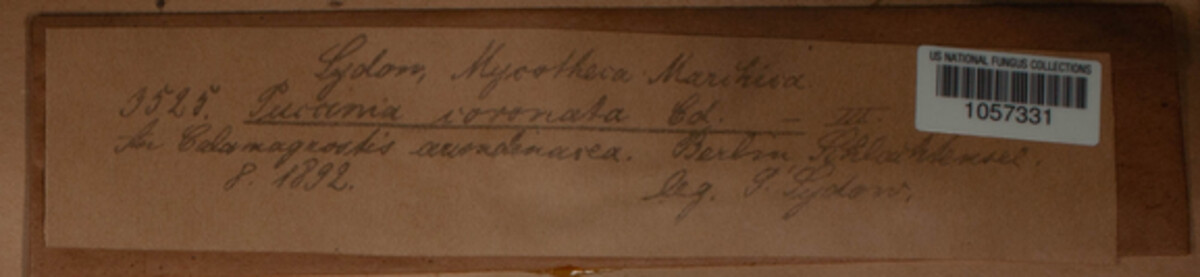 Sydow, Mycotheca Marchica
US NATIONAL FUNGUS COLLECTIONS
1057331
3525. Puccinia coronata Cd. - III.
An Calamagrostis arundinacea. Berlin, Schlachtensee.
8. 1892.
leg. P. Sydow.